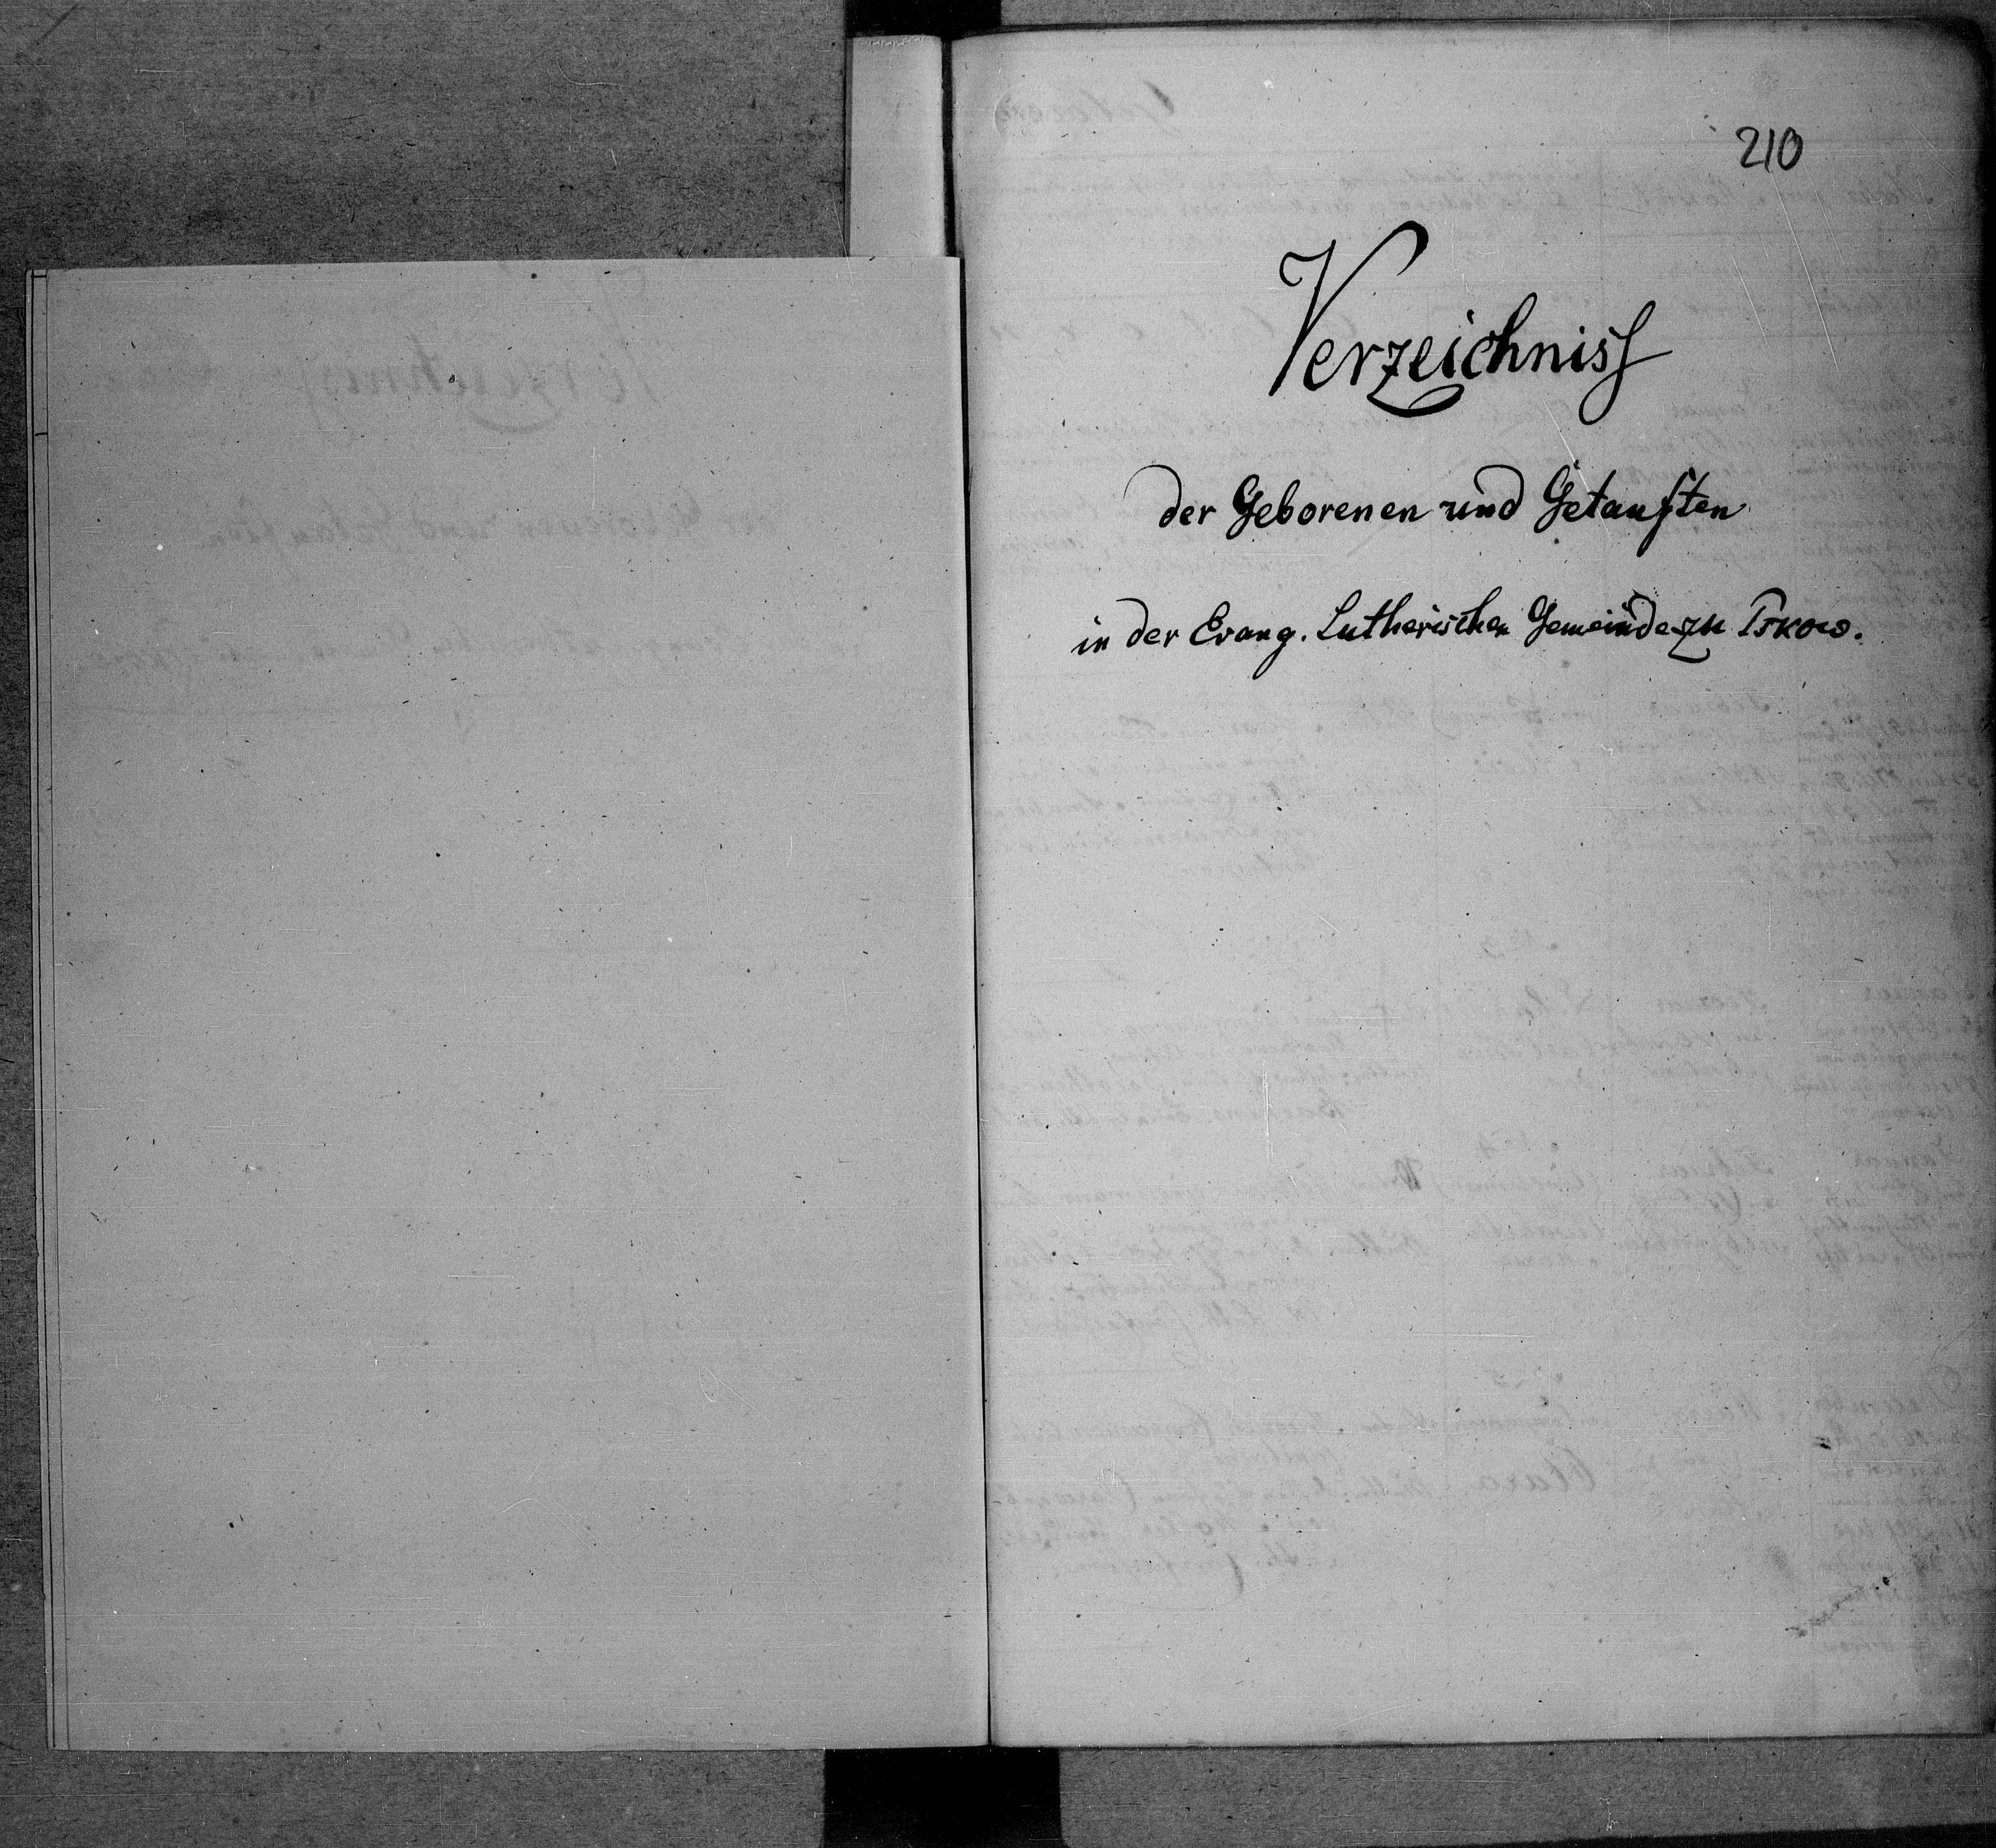 210
Verzeichniss
der Geborenen und Getauften
in der Evang. Lutherischen Gemeinde zu Pskow.